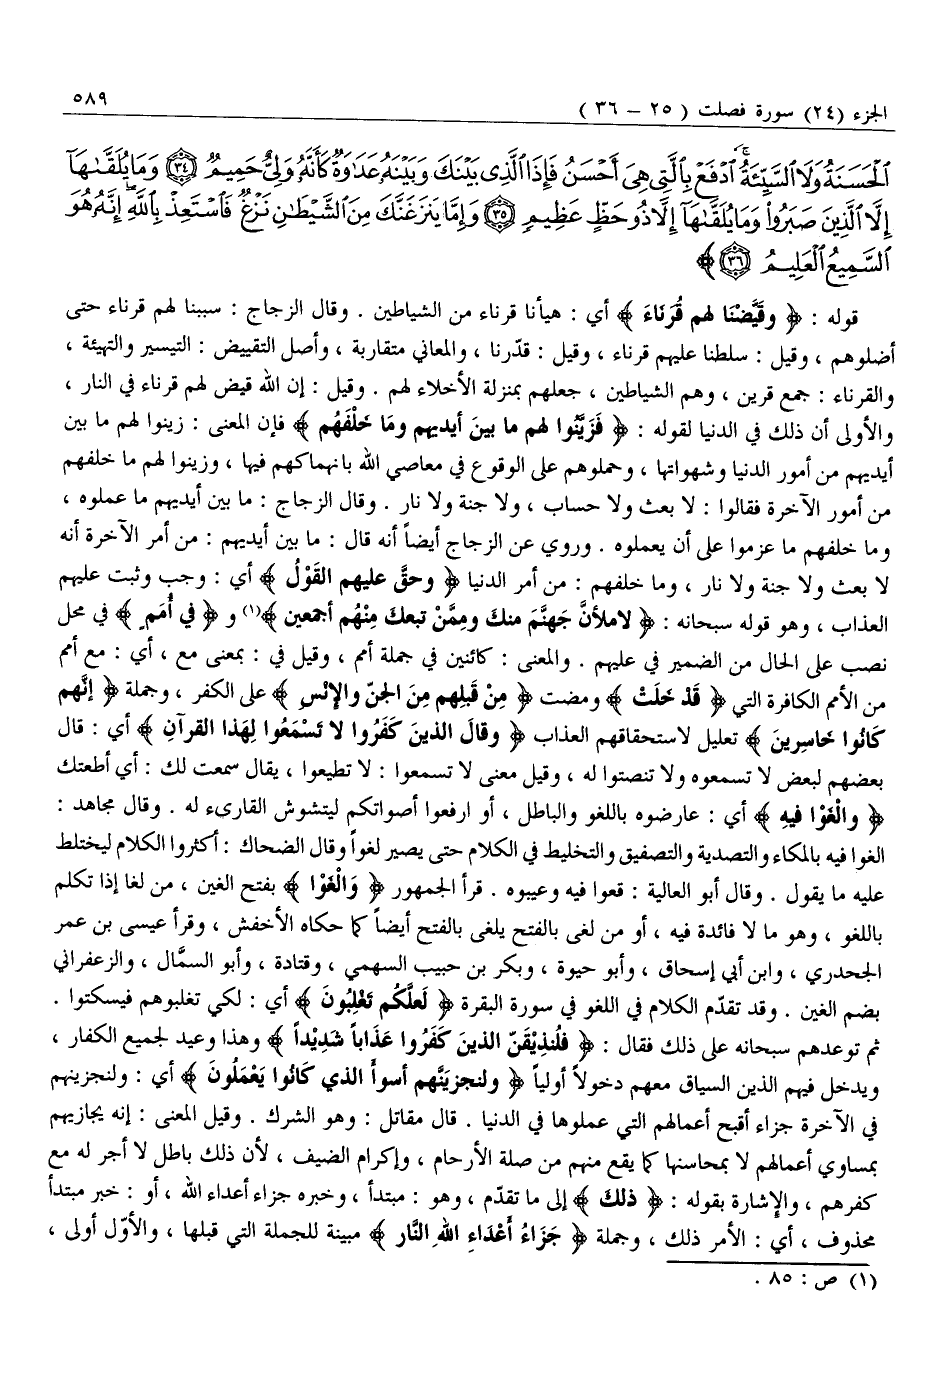 الجزء (٢٤) سورة فصلت ( ٢٥ – ٣٦ )
٥٨٩
ٱلْحَسَنَةُ وَلَا ٱلسَّيِّئَةُ ۚ ٱدْفَعْ بِٱلَّتِى هِىَ أَحْسَنُ فَإِذَا ٱلَّذِى بَيْنَكَ وَبَيْنَهُۥ عَدَٰوَةٌ كَأَنَّهُۥ وَلِىٌّ حَمِيمٌ ﴿٣٤﴾ وَمَا يُلَقَّىٰهَآ
إِلَّا ٱلَّذِينَ صَبَرُوا۟ وَمَا يُلَقَّىٰهَآ إِلَّا ذُو حَظٍّ عَظِيمٍ ﴿٣٥﴾ وَإِمَّا يَنزَغَنَّكَ مِنَ ٱلشَّيْطَٰنِ نَزْغٌ فَٱسْتَعِذْ بِٱللَّهِ ۖ إِنَّهُۥ هُوَ
ٱلسَّمِيعُ ٱلْعَلِيمُ ﴿٣٦﴾ ﴾
قوله : ﴿ وقَيَّضْنَا لهم قُرنَاءَ ﴾ أي : هيأنا قرناء من الشياطين . وقال الزجاج : سببنا لهم قرناء حتى
أضلوهم ، وقيل : سلطنا عليهم قرناء ، وقيل : قدّرنا ، والمعاني متقاربة ، وأصل التقييض : التيسير والتهيئة ،
والقرناء : جمع قرين ، وهم الشياطين ، جعلهم بمنزلة الأخلاء لهم . وقيل : إن الله قيض لهم قرناء في النار ،
والأولى أن ذلك في الدنيا لقوله : ﴿ فَزَيَّنُوا لهم ما بينَ أيديهم ومَا خَلْفَهُم ﴾ فإن المعنى : زينوا لهم ما بين
أيديهم من أمور الدنيا وشهواتها ، وحملوهم على الوقوع في معاصي الله بانهماكهم فيها ، وزينوا لهم ما خلفهم
من أمور الآخرة فقالوا : لا بعث ولا حساب ، ولا جنة ولا نار . وقال الزجاج : ما بين أيديهم ما عملوه ،
وما خلفهم ما عزموا على أن يعملوه . وروي عن الزجاج أيضاً أنه قال : ما بين أيديهم : من أمر الآخرة أنه
لا بعث ولا جنة ولا نار ، وما خلفهم : من أمر الدنيا ﴿ وحقَّ عليهم القَوْلُ ﴾ أي : وجب وثبت عليهم
العذاب ، وهو قوله سبحانه : ﴿ لاملأنَّ جَهنَّمَ منكَ وممَّنْ تبعكَ مِنْهُم أجمعين ﴾(١) و ﴿ في أُمَمٍ ﴾ في محل
نصب على الحال من الضمير في عليهم . والمعنى : كائنين في جملة أمم ، وقيل في : بمعنى مع ، أي : مع أمم
من الأمم الكافرة التي ﴿ قَدْ خَلَتْ ﴾ ومضت ﴿ مِنْ قَبلِهم مِنَ الجنّ والإنْسِ ﴾ على الكفر ، وجملة ﴿ إنَّهم
كَانُوا خَاسِرينَ ﴾ تعليل لاستحقاقهم العذاب ﴿ وقالَ الذينَ كَفَرُوا لا تَسْمَعُوا لِهَذا القرآنِ ﴾ أي : قال
بعضهم لبعض لا تسمعوه ولا تنصتوا له ، وقيل معنى لا تسمعوا : لا تطيعوا ، يقال سمعت لك : أي أطعتك
﴿ والْغَوْا فيهِ ﴾ أي : عارضوه باللغو والباطل ، أو ارفعوا أصواتكم ليتشوش القارىء له . وقال مجاهد :
الغوا فيه بالمكاء والتصدية والتصفيق والتخليط في الكلام حتى يصير لغواً وقال الضحاك : أكثروا الكلام ليختلط
عليه ما يقول . وقال أبو العالية : قعوا فيه وعيبوه . قرأ الجمهور ﴿ وَالْغَوْا ﴾ بفتح الغين ، من لغا إذا تكلم
باللغو ، وهو ما لا فائدة فيه ، أو من لغى بالفتح يلغى بالفتح أيضاً كما حكاه الأخفش ، وقرأ عيسى بن عمر
الجحدري ، وابن أبي إسحاق ، وأبو حيوة ، وبكر بن حبيب السهمي ، وقتادة ، وأبو السمَّال ، والزعفراني
بضم الغين . وقد تقدّم الكلام في اللغو في سورة البقرة ﴿ لَعلَّكُم تَغْلِبُونَ ﴾ أي : لكي تغلبوهم فيسكتوا .
ثم توعدهم سبحانه على ذلك فقال : ﴿ فلَنذِيْقَنّ الذينَ كَفَرُوا عَذَاباً شَدِيْداً ﴾ وهذا وعيد لجميع الكفار ،
ويدخل فيهم الذين السياق معهم دخولاً أولياً ﴿ ولنجزيَنَّهم أسوأَ الذي كَانُوا يَعْمَلُونَ ﴾ أي : ولنجزينهم
في الآخرة جزاء أقبح أعمالهم التي عملوها في الدنيا . قال مقاتل : وهو الشرك . وقيل المعنى : إنه يجازيهم
بمساوي أعمالهم لا بمحاسنها كما يقع منهم من صلة الأرحام ، وإكرام الضيف ، لأن ذلك باطل لا أجر له مع
كفرهم ، والإشارة بقوله : ﴿ ذلكَ ﴾ إلى ما تقدّم ، وهو : مبتدأ ، وخبره جزاء أعداء الله ، أو : خبر مبتدأ
محذوف ، أي : الأمر ذلك ، وجملة ﴿ جَزَاءُ أَعْدَاءِ اللهِ النَّار ﴾ مبينة للجملة التي قبلها ، والأوّل أولى ،
(١) ص : ٨٥ .